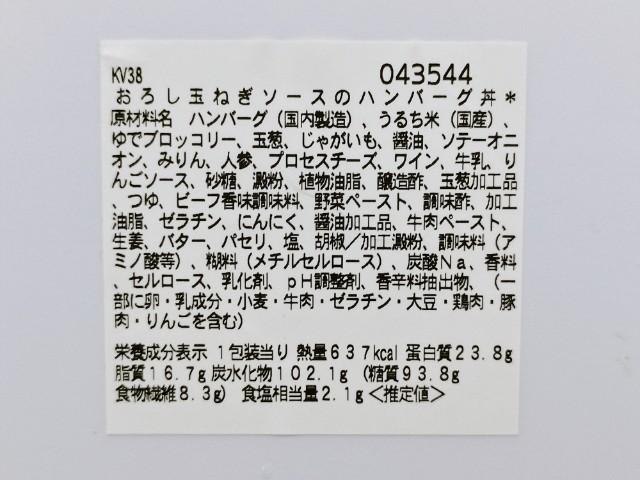 KV38 043544
おろし玉ねぎソースのハンバーグ丼*
原材料名 ハンバーグ(国内製造)、うるち米(国産)、
ゆでブロッコリー、玉葱、じゃがいも、醬油、ソテーオニ
オン、みりん、人参、プロセスチーズ、ワイン、牛乳、り
んごソース、砂糖、澱粉、植物油脂、醸造酢、玉葱加工品
、つゆ、ビーフ香味調味料、野菜ペースト、調味酢、加工
油脂、ゼラチン、にんにく、醬油加工品、牛肉ペースト、
生姜、バター、パセリ、塩、胡椒/加工澱粉、調味料(ア
ミノ酸等)、粘稠料(メチルセルロース)、炭酸Na、香料
、セルロース、乳化剤、pH調整剤、香辛料抽出物、(一
部に卵・乳成分・小麦・牛肉・ゼラチン・大豆・鶏肉・豚
肉・りんごを含む)
栄養成分表示 1包装当り 熱量637kcal 蛋白質23.8g
脂質16.7g 炭水化物102.1g (糖質93.8g
食物繊維8.3g) 食塩相当量2.1g<推定値>